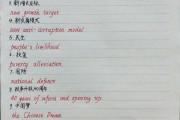 3. 新增长目标
new growth target
4. 新反腐模式
new anti-corruption model
5. 民生
people's livelihood
6. 扶贫
poverty alleviation
7. 国防
national defence
8. 改革开放40周年
40 years of reform and opening up
9. 中国梦
the Chinese Dream